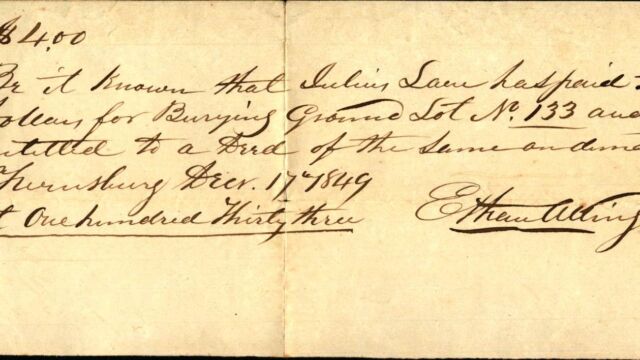 $4.00
Be it Known that Julius Lane has paid
Dollars for Burying Ground Lot No. 133 and
entitled to a Deed of the same on dema
Decr. 17th 1849
t One hundred Thirty three Ethan Alling